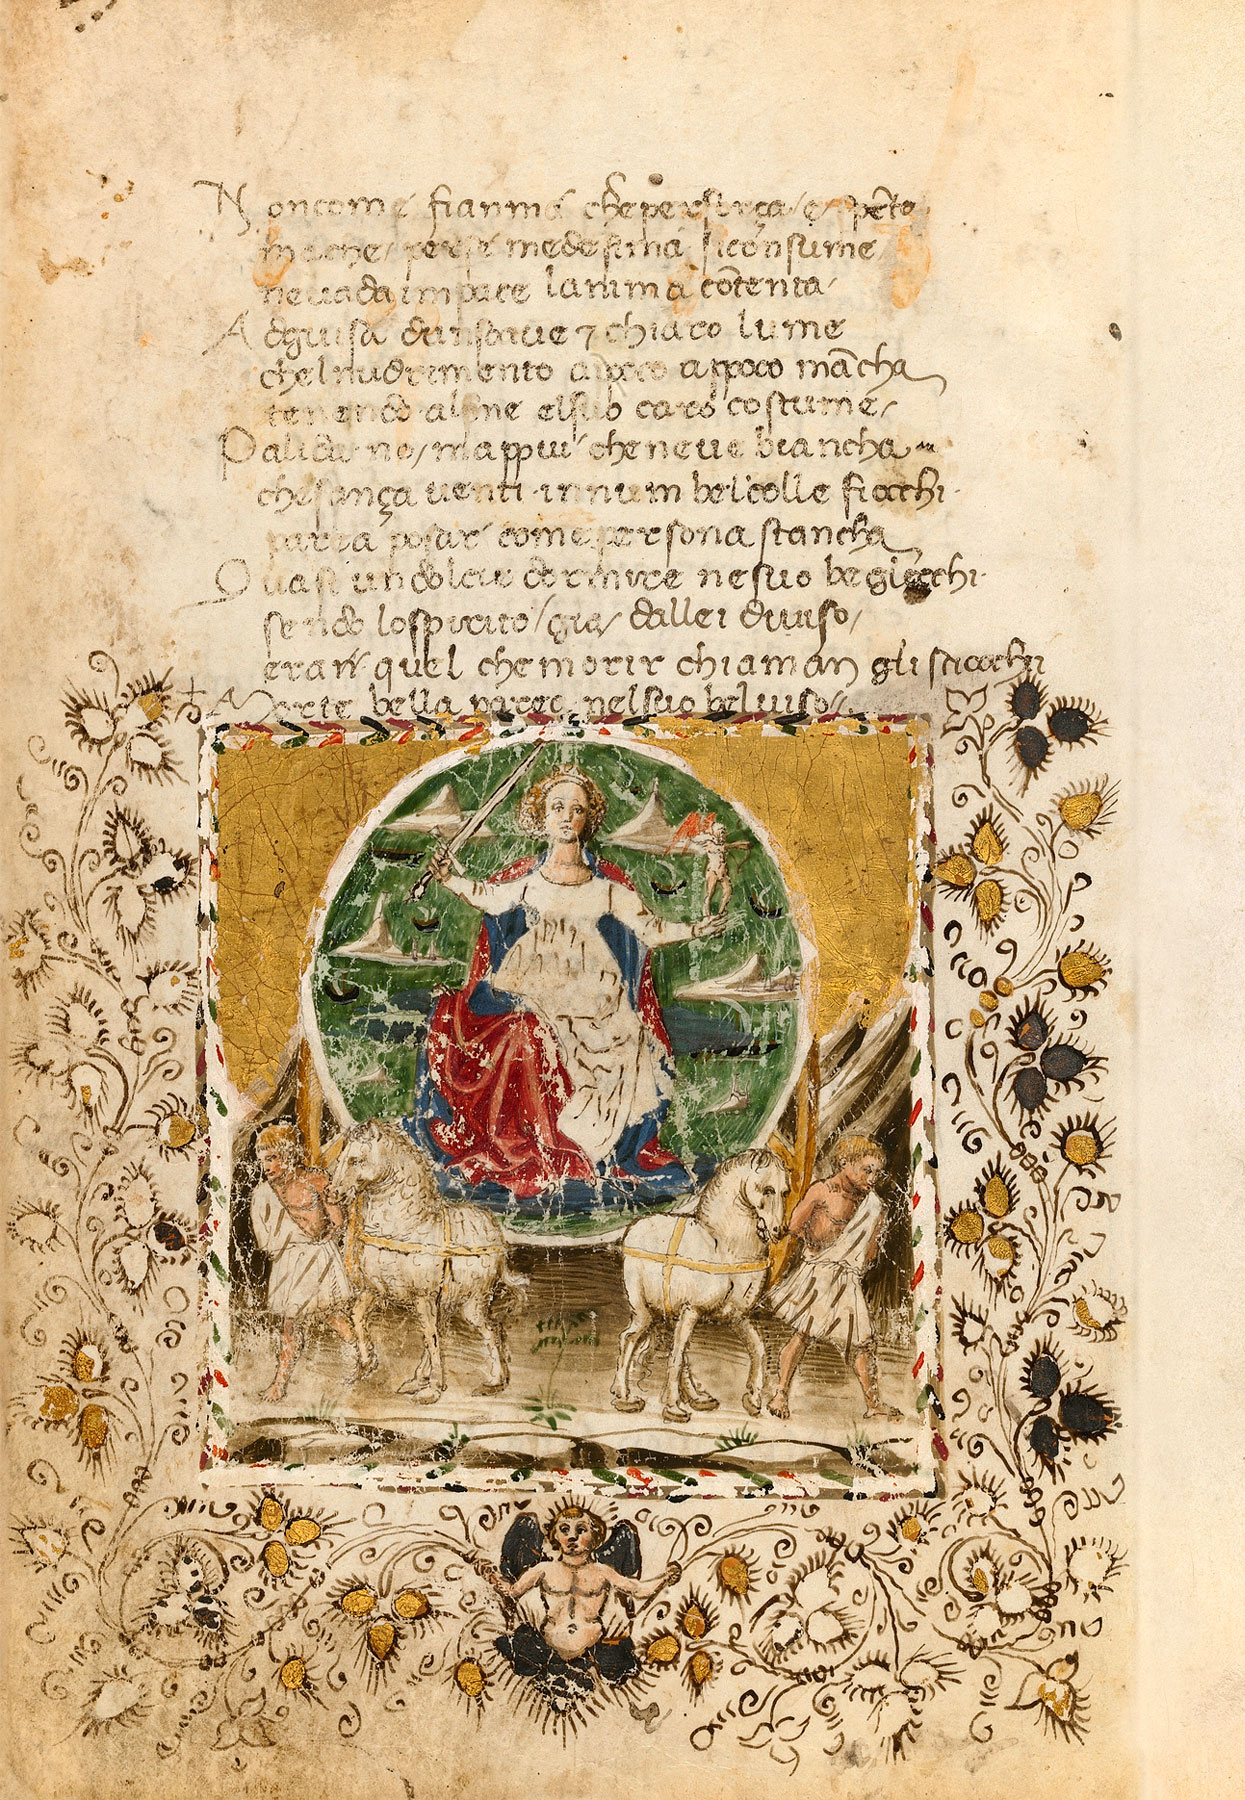 Non come fiamma che per força e spēta
ma che per se medesima si consume
neva da impace lanima cōtenta
A dguisa dun soave ⁊ chiaro lume
chel nudrimento a poco appoco mācha
tenendo alfine el suo caro costume
Palida no/ ma ppiu che neve biancha
che sança venti innum bel colle fiocchi
parea posar come persona stancha
Quasi un dolcie dormire nesuo begiocchi
sendo lo spirito/ gia dallei diviso/
eran quel che morir chiaman gli sciocchi
Morte bella parea nel suo bel viso/